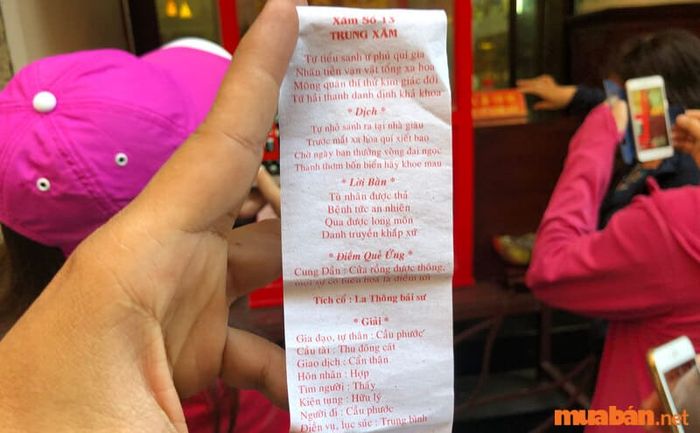 Xăm Số 13
TRUNG XĂM
Tự tiểu sanh ư phú quí gia
Nhãn tiền vạn vật tổng xa hoa
Mông quân thí thử kim giác đới
Tứ hải thanh danh định khả khoa
* Dịch *
Tự nhỏ sanh ra tại nhà giàu
Trước mắt xa hoa quí xiết bao
Chờ ngày ban thưởng vòng đai ngọc
Thanh thơm bốn biển hãy khoe mau
* Lời Bàn *
Tù nhân được thả
Bệnh tức an nhiên
Qua được long môn
Danh truyền khắp xứ
* Điềm Quẻ Ứng *
Cung Dần : Cửa rồng được thông,
mọi sự có tuên hoa là điềm tốt
Tích cổ : La Thông bái sư
* Giải *
Gia đạo, tự thân : Cầu phước
Cầu tài : Thu đông cát
Giao dịch : Cẩn thận
Hôn nhân : Hợp
Tìm người : Thấy
Kiện tụng : Hữu lý
Người đi : Cầu phước
Điền vụ, lục súc : Trung bình
muaban.net